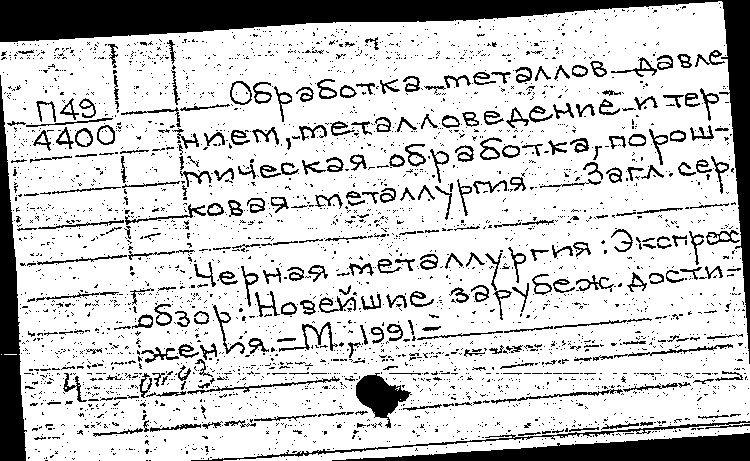 П49
4400
Обработка металлов давле-
нием, металловедение и тер-
мическая обработка, порош-
ковая металлургия Загл. сер.
Черная металлургия: Экспресс
обзор: Новейшие зарубеж. дости-
жения. - М., 1991 -
4